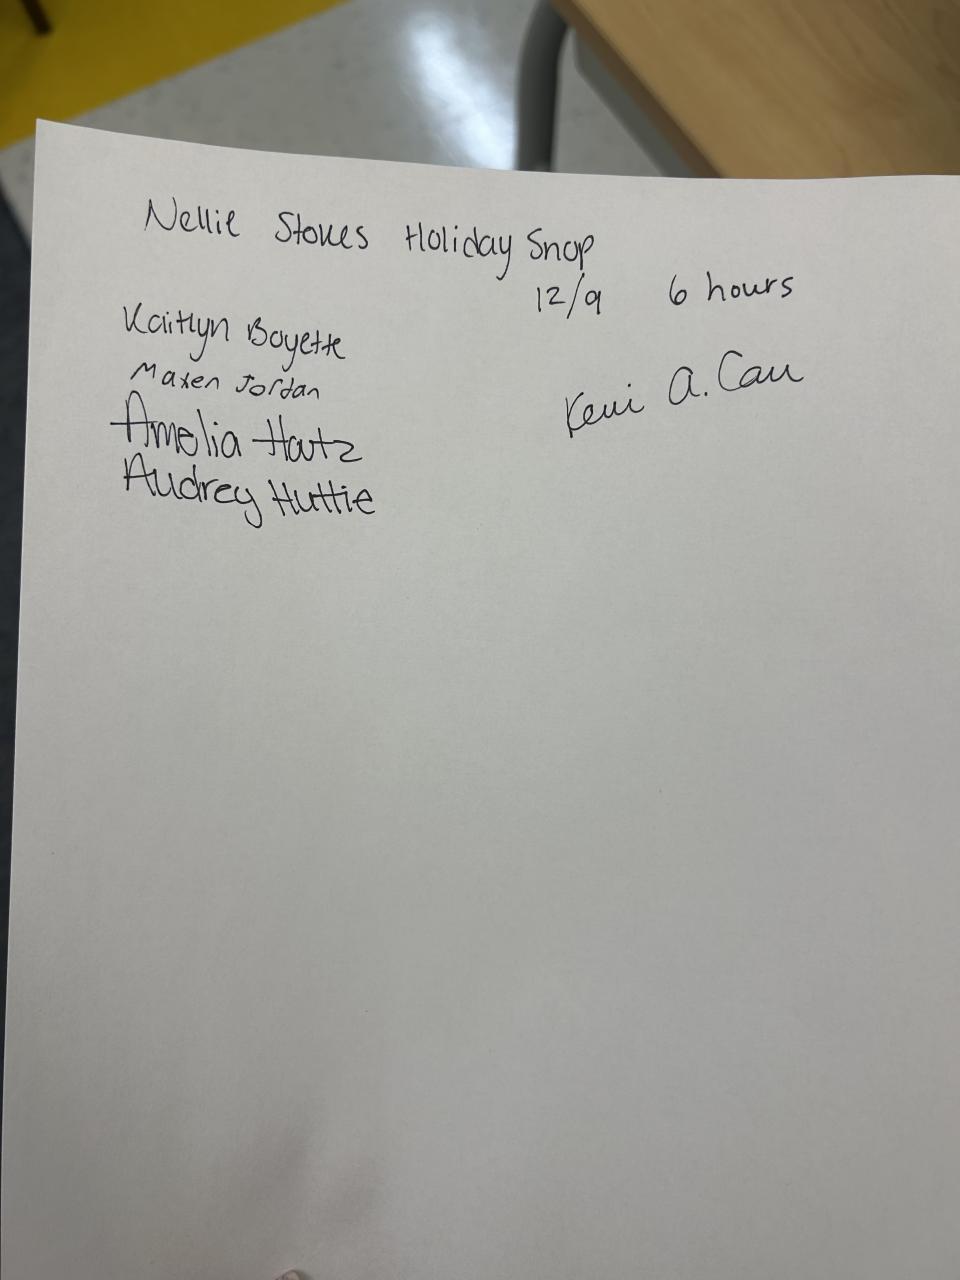 Nellie Stokes Holiday Shop
12/9 6 hours
Kaitlyn Boyette
Maxen Jordan
Amelia Hatz
Audrey Huttie
A.